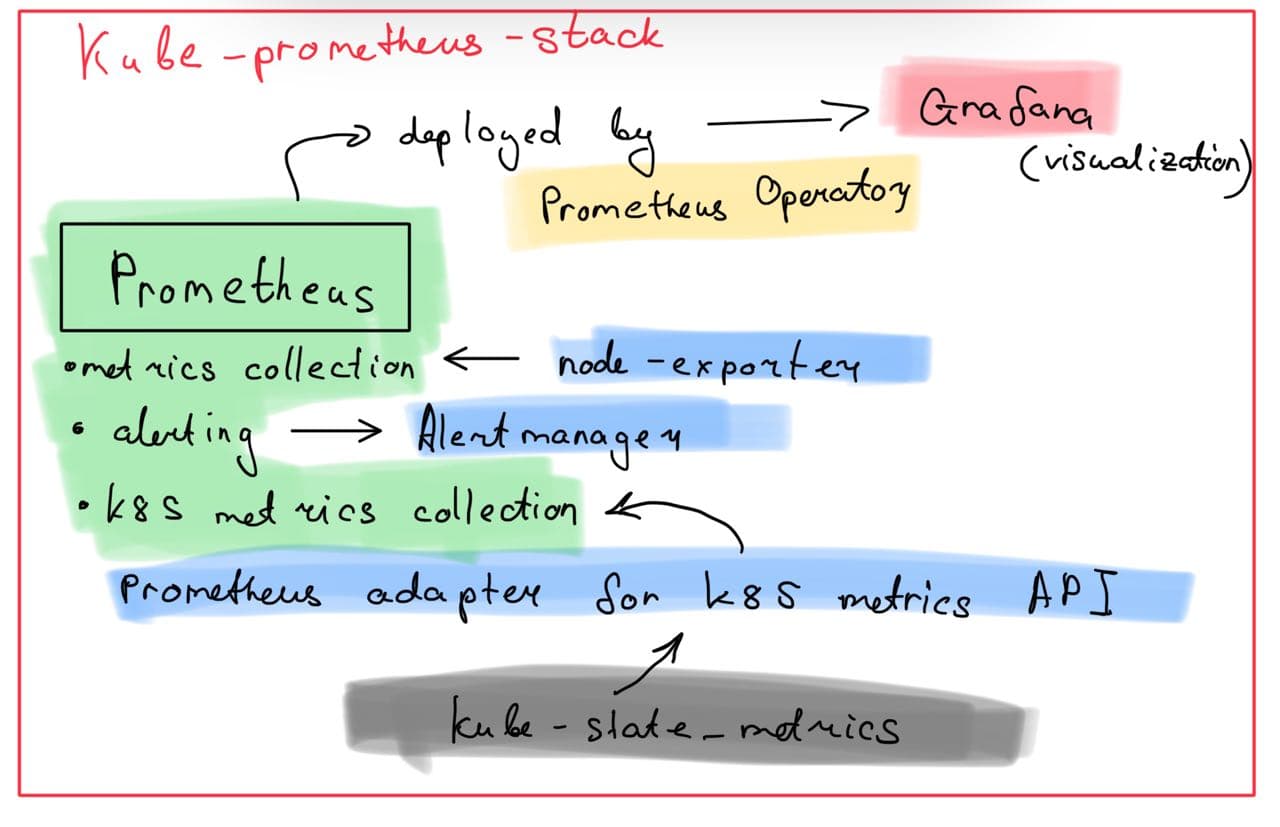 Kube-prometheus-stack
deployed by
Grafana
(visualization)
Prometheus Operator
Prometheus
•metrics collection
node-exporter
• alerting
Alertmanager
• k8s metrics collection
Prometheus adapter for k8s metrics API
kube-state-metrics